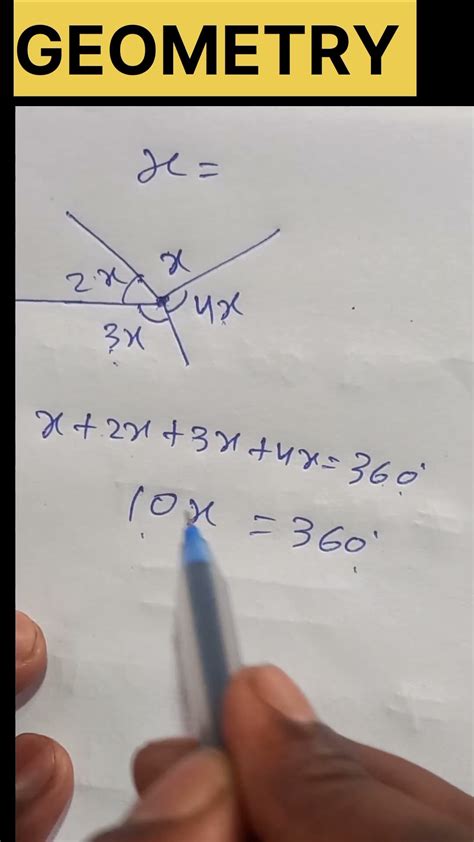 GEOMETRY
x =
x
2x
4x
3x
x + 2x + 3x + 4x = 360°
10x = 360°